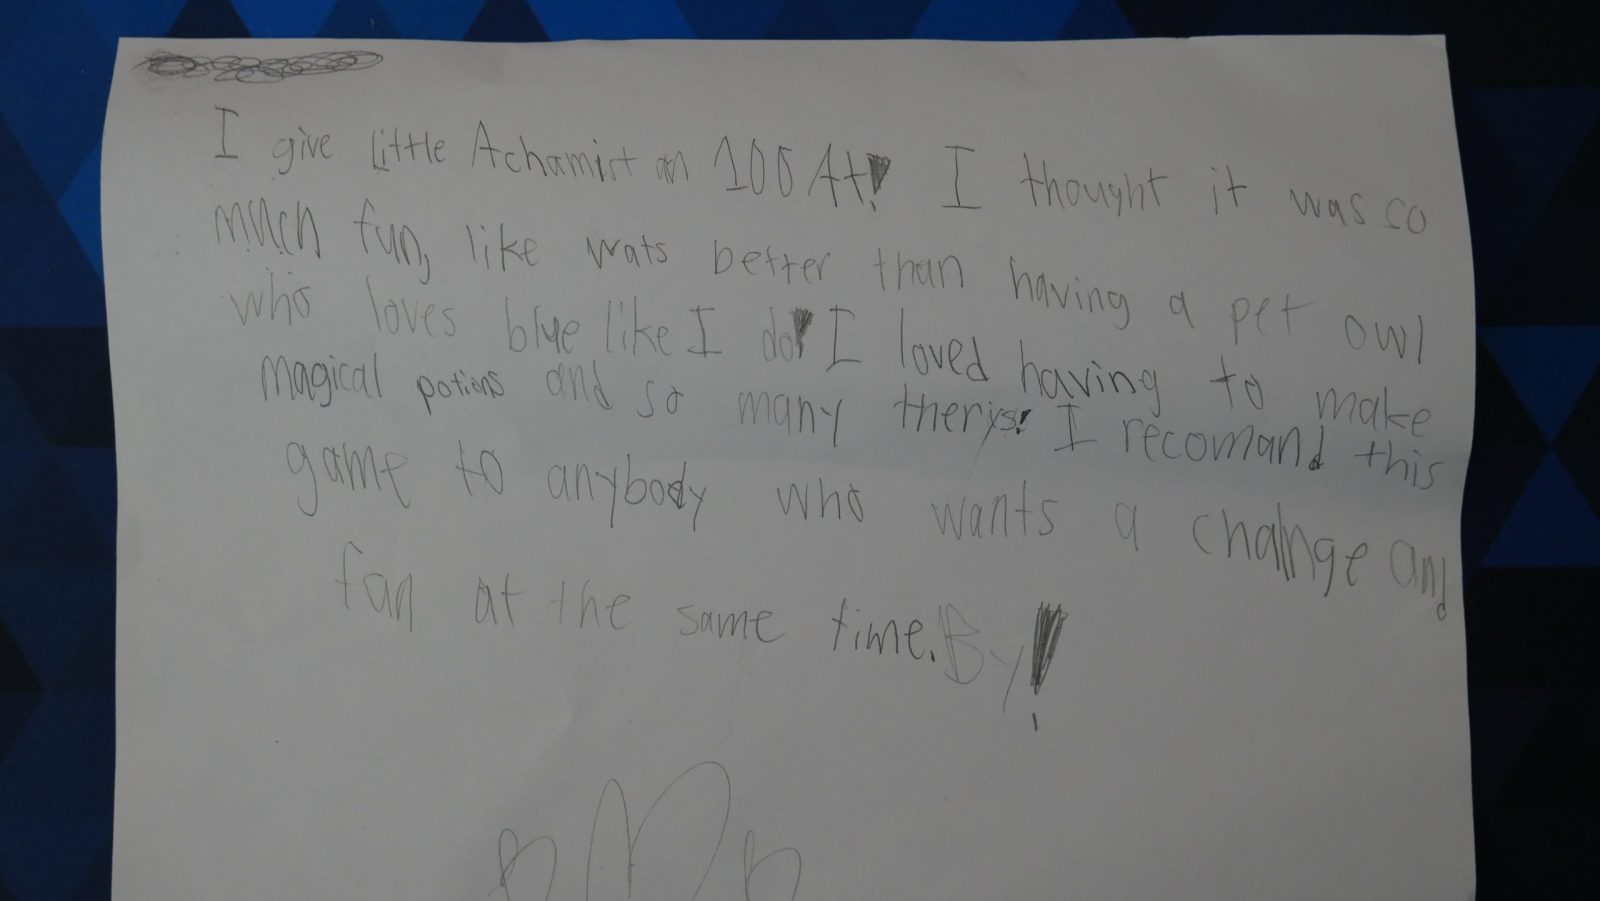 I give Little Achamist an 100 At! I thought it was so
much fun, like wats better than having a pet owl
who loves blue like I do! I loved having to make
magical potions and so many therys! I recomand this
game to anybody who wants a change and
fun at the same time. By!